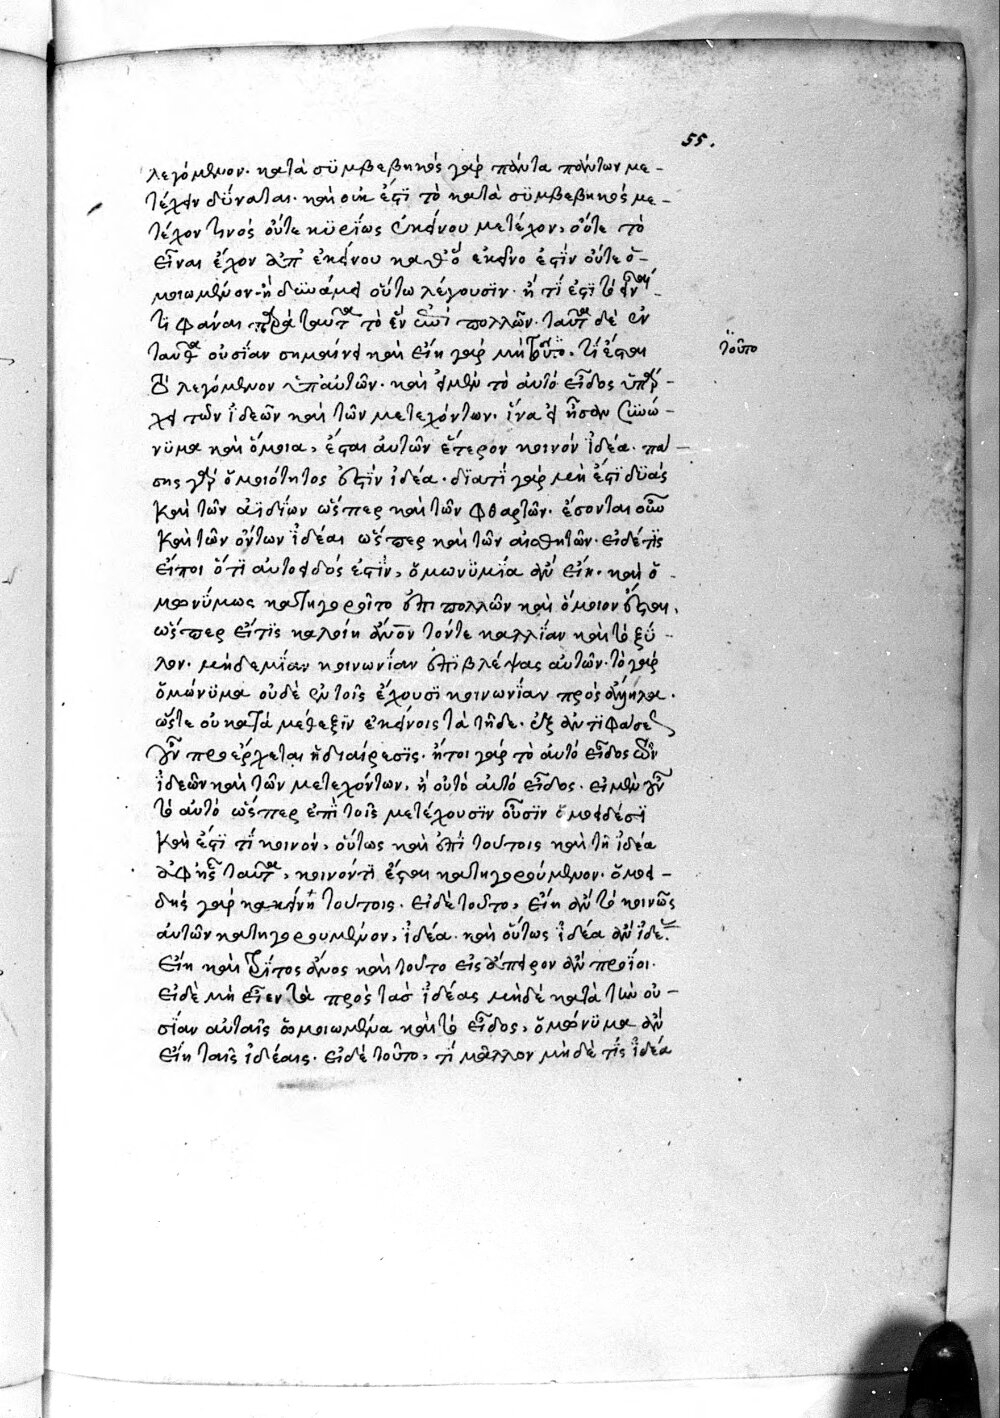 55.
λεγόμενον. κατὰ συμβεβηκὸς γὰρ πάντα πάντων με-
τέχειν δύναται. καὶ οὐκ ἔστι τὸ κατὰ συμβεβηκός με-
τέχον τινὸς οὔτε κυρίως ἐκείνου μετέχον, οὔτε τὸ
εἶναι ἔχον ἀπ' ἐκείνου καθ' ὅ ἐκεῖνο ἐστὶν οὔτε ὁ-
μοιωμένον. ἢ δείξει οὕτω λέγουσιν. ἢ τί ἐστι τὸ εἶναί
τι φάναι παρὰ ταῦτα τὸ ἓν ἐπὶ πολλῶν. ταῦτα δὲ ἐν
ταῦθα οὐσίαν σημαίνει καὶ εἴη γὰρ μὴ τοῦτο. τί ἔσται
τοῦτο
τὸ λεγόμενον ὑπ' αὐτῶν. καὶ εἰ μὲν τὸ αὐτὸ εἶδος ὑπάρ-
χει τῶν ἰδεῶν καὶ τῶν μετεχόντων. ἵνα εἰ ἦσαν συνώ-
νυμα καὶ ὅμοια, ἔσται αὐτῶν ἕτερον κοινὸν ἰδέα. πά-
σης γὰρ ὁμοιότητος ἐστὶν ἰδέα. διατί γὰρ μὴ ἔστι δυὰς
καὶ τῶν ἀϊδίων ὥσπερ καὶ τῶν φθαρτῶν. ἔσονται οὕτω
καὶ τῶν ὄντων ἰδέαι ὥσπερ καὶ τῶν αἰσθητῶν. εἰ δέ τις
εἴποι ὅτι αὐτοειδός ἐστιν, ὁμωνυμία ἂν εἴη. καὶ ὁ-
μωνύμως κατηγοροῖτο ἐπὶ πολλῶν καὶ ὅμοιον ἔσται,
ὥσπερ εἴ τις καλοίη ἄνον τόν τε καλλίαν καὶ τὸ ξύ-
λον. μηδεμίαν κοινωνίαν ἐπιβλέψας αὐτῶν. τὰ γὰρ
ὁμώνυμα οὐδὲ ἐν τοῖς ἔχουσι κοινωνίαν πρὸς ἄλληλα.
ὥστε οὐ κατὰ μέθεξιν ἐκείνοις τὰ τῇδε. ἐξ ἀντιφάσε
γοῦν προέρχεται ἡ διαίρεσις. ἤτοι γὰρ τὸ αὐτὸ εἶδος τῶν
ἰδεῶν καὶ τῶν μετεχόντων, ἢ οὐ τὸ αὐτὸ εἶδος. εἰ μὲν γοῦν
τὸ αὐτὸ ὥσπερ ἐπὶ τοῖς μετέχουσιν οὖσιν ὁμοειδέσι
καὶ ἔστι τὶ κοινόν, οὕτως καὶ ἐπὶ τούτοις καὶ τῇ ἰδέα
ἀφ' ἧς ταῦτα, κοινόν τι ἔσται κατηγορούμενον. ὁμοει-
δὴς γὰρ κακείνη τούτοις. εἰ δὲ τοῦτο, εἴη ἂν τὸ κοινῶς
αὐτῶν κατηγορουμένον, ἰδέα. καὶ οὕτως ἰδέα ἂν ἰδέας
εἴη καὶ τρίτος ἄνος καὶ τοῦτο εἰς ἄπειρον ἂν προΐοι.
εἰ δὲ μὴ εἶεν τὰ πρὸς τὰς ἰδέας μηδὲ κατὰ τὴν οὐ-
σίαν αὐταῖς ὁμοιωμένα καὶ τὸ εἶδος, ὁμώνυμα ἂν
εἴη ταῖς ἰδέαις. εἰ δὲ τοῦτο, τί μᾶλλον μηδὲ τῖς ἰδέα